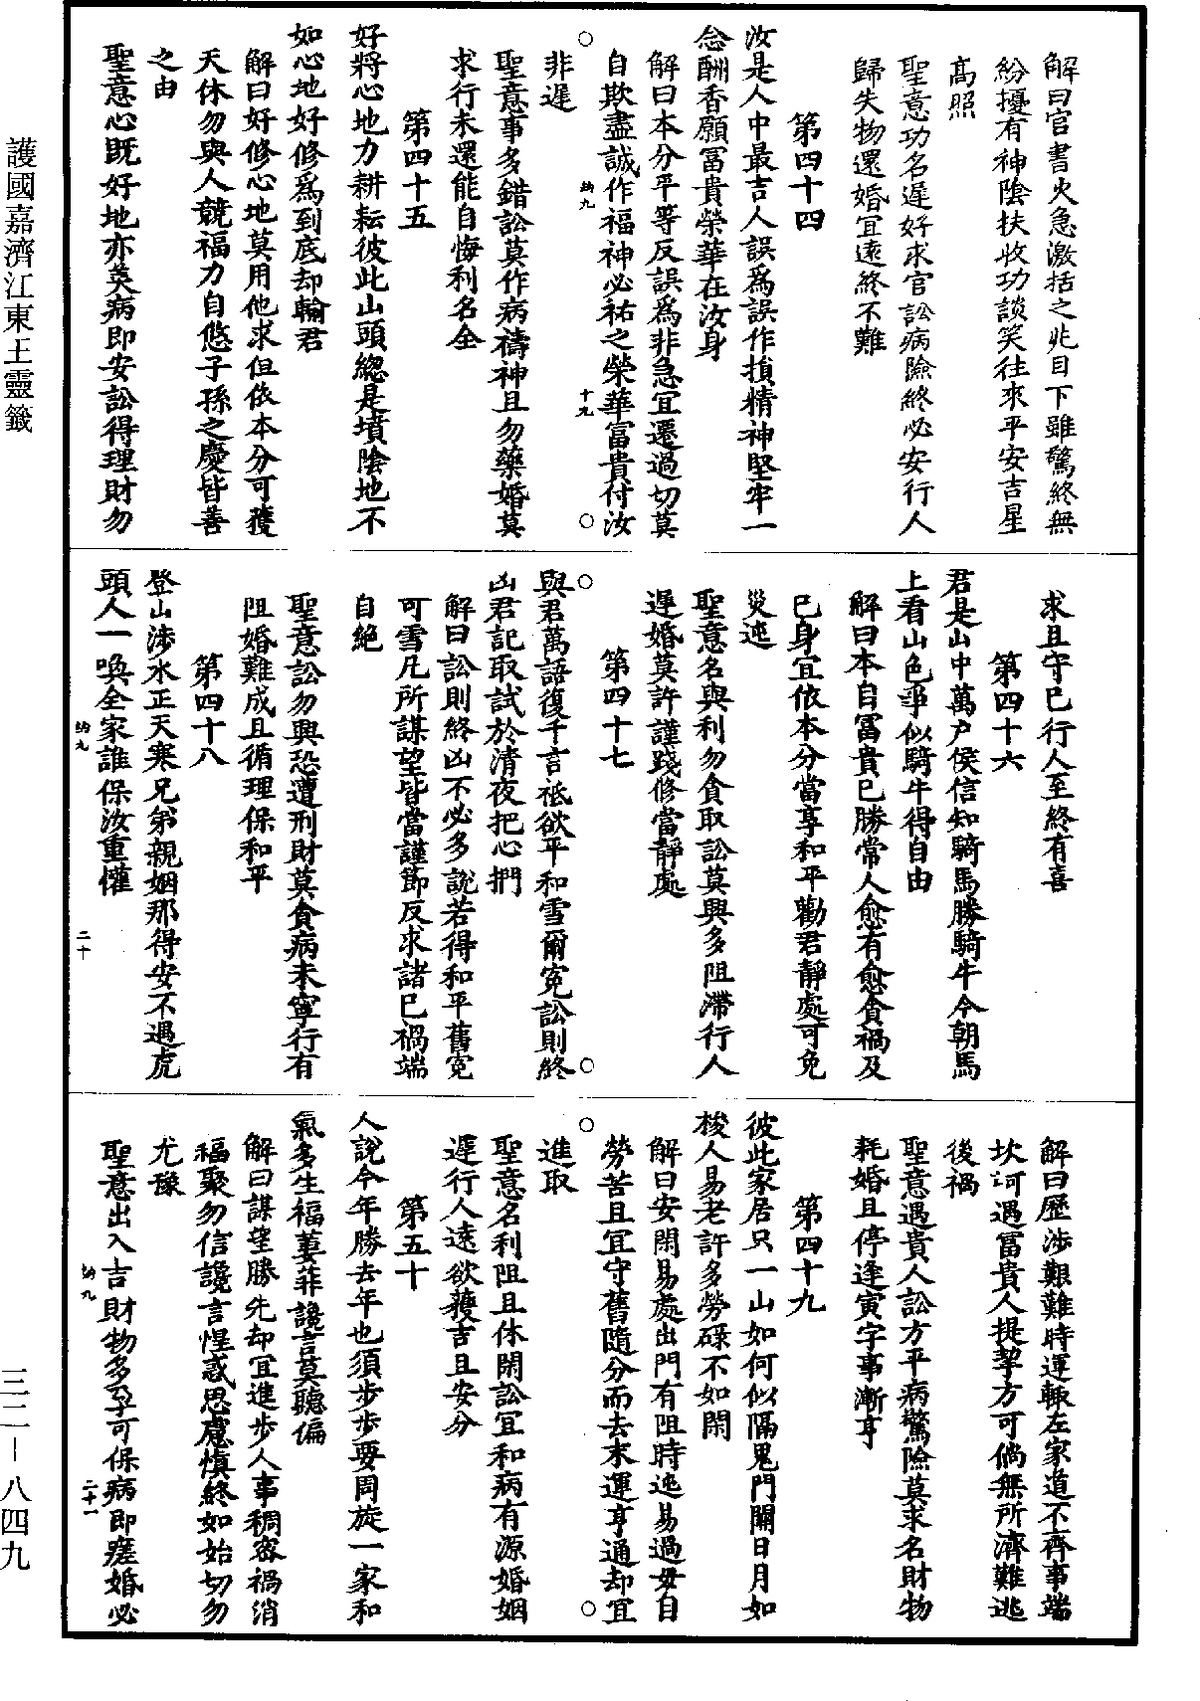 解曰官書火急激括之兆目下雖驚終無
紛擾有神陰扶收功談笑往來平安吉星
高照
聖意功名遲好求官訟病險終必安行人
歸失物還婚宜遠終不難
第四十四
汝是人中最吉人誤為誤作損精神堅牢一
念酬香願富貴榮華在汝身
解曰本分平等反誤為非急宜遷過切莫
自欺盡誠作福神必祐之榮華富貴付汝
非遲
聖意事多錯訟莫作病禱神且勿藥婚莫
求行未還能自悔利名全
第四十五
好將心地力耕耘彼此山頭總是墳陰地不
如心地好修為到底却輸君
解曰好修心地莫用他求但依本分可獲
天休勿與人競福力自悠子孫之慶皆善
之由
聖意心既好地亦美病即安訟得理財勿
求且守己行人至終有喜
第四十六
君是山中萬戶侯信知騎馬勝騎牛今朝馬
上看山色爭似騎牛得自由
解曰本自富貴已勝常人愈有愈貪禍及
己身宜依本分當享和平勸君靜處可免
災迍
聖意名與利勿貪取訟莫興多阻滯行人
遲婚莫許謹踐修當靜處
第四十七
與君萬語復千言祗欲平和雪爾冤訟則終
凶君記取試於清夜把心捫
解曰訟則終凶不必多說若得和平舊冤
可雪凡所謀望皆當謹節反求諸己禍端
自絕
聖意訟勿興恐遭刑財莫貪病未寧行有
阻婚難成且循理保和平
第四十八
登山涉水正天寒兄弟親姻那得安不遇虎
頭人一喚全家誰保汝重懽
解曰歷涉艱難時運輙左家道不齊事端
坎坷遇富貴人提挈方可倘無所濟難逃
後禍
聖意遇貴人訟方平病驚險莫求名財物
耗婚且停逢寅字事漸亨
第四十九
彼此家居只一山如何似隔鬼門關日月如
梭人易老許多勞碌不如閑
解曰安閑易處出門有阻時迍易過毋自
勞苦且宜守舊隨分而去末運亨通却宜
進取
聖意名利阻且休閑訟宜和病有源婚姻
遲行人遠欲獲吉且安分
第五十
人說今年勝去年也須步步要周旋一家和
氣多生福萋菲讒言莫聽偏
解曰謀望勝先却宜進步人事稠密禍消
福聚勿信讒言惺惑思慮慎終如始切勿
尤豫
聖意出入吉財物多孕可保病即瘥婚必
護國嘉濟江東王靈籤
三二—八四九
納九
十九
納九
二十
納九
二十一